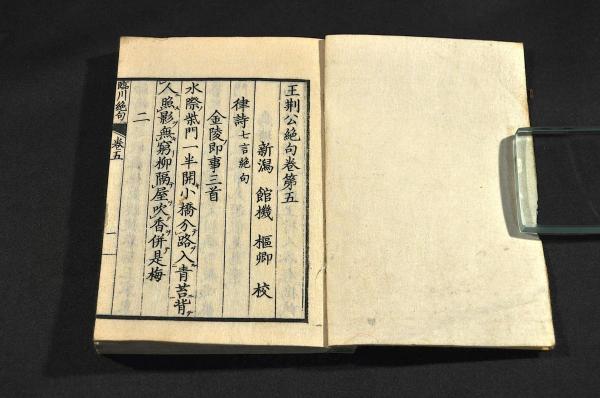 王荊公絶句卷第五
新潟 館機 樞卿 校
律詩七言絶句
金陵即事三首
水際柴門一半開小橋分路入青苔背
人照影無窮柳隔屋吹香併是梅
二
臨川絶句 卷五 一